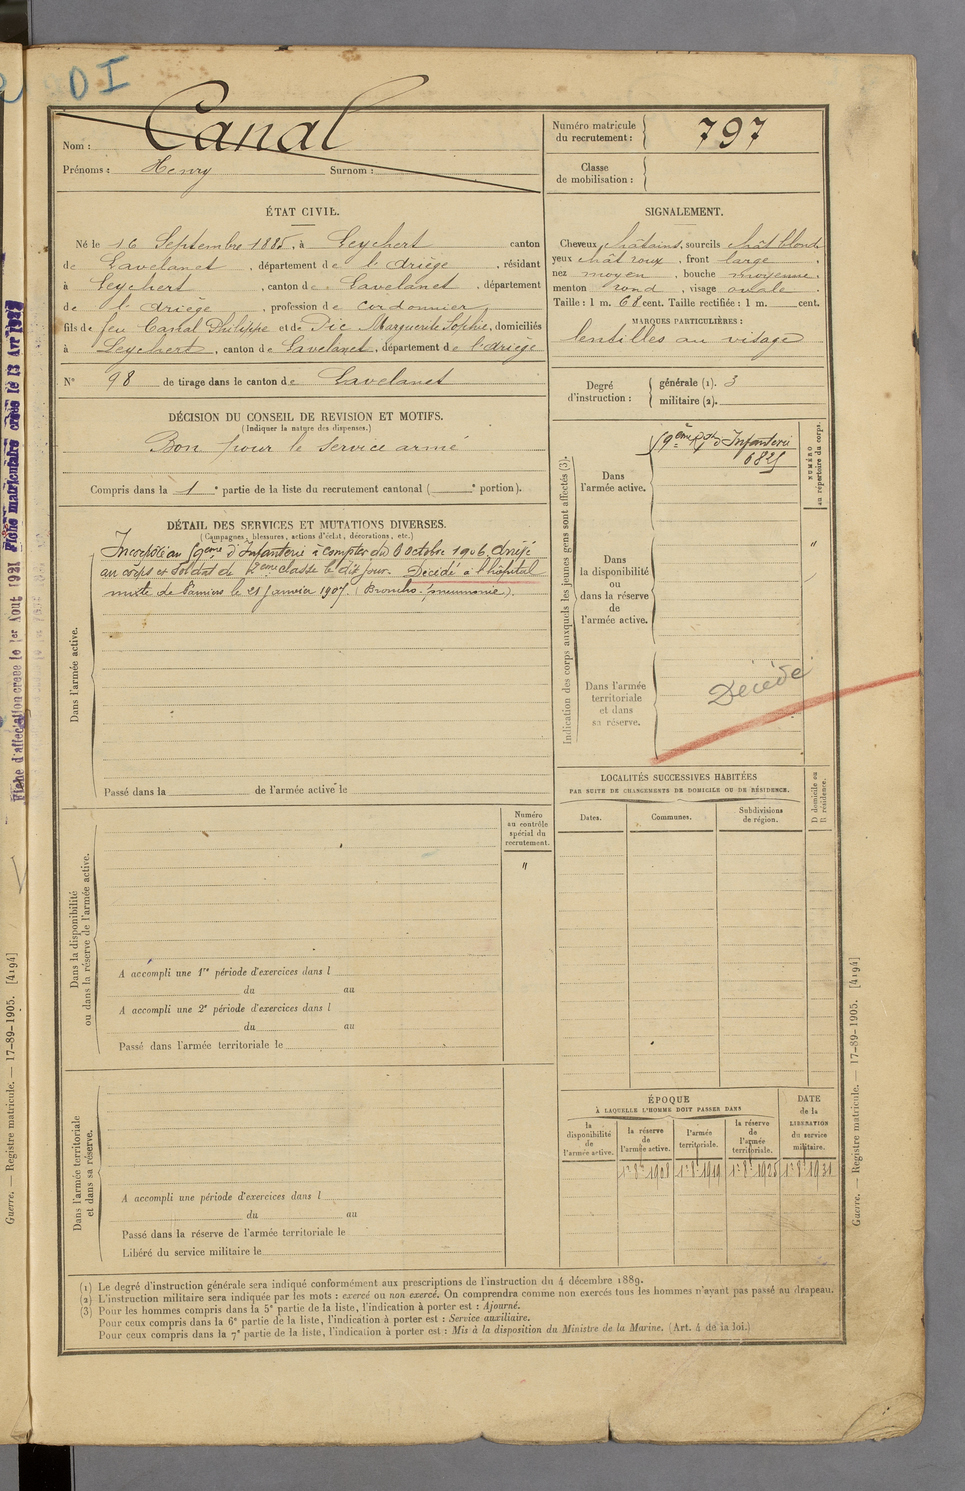 DI
Nom : Canal
Prénoms : Henry Surnom :
Numéro matricule du recrutement : 797
Classe de mobilisation :
ÉTAT CIVIL.
Né le 16 Septembre 1885, à Leychert canton
de Lavelanet, département de l'Ariège, résidant
à Leychert, canton de Lavelanet, département
de l'Ariège, profession de cordonnier
fils de feu Canal Philippe et de Pic Marguerite Sophie, domiciliés
à Leychert, canton de Lavelanet, département de l'Ariège
N° 98 de tirage dans le canton de Lavelanet
SIGNALEMENT.
Cheveux châtains, sourcils chât blonds
yeux chât roux, front large,
nez moyen, bouche moyenne,
menton rond, visage ovale.
Taille : 1 m. 68 cent. Taille rectifiée : 1 m. cent.
MARQUES PARTICULIÈRES :
lentilles au visage
Degré d'instruction : générale (1). 3
militaire (2).
DÉCISION DU CONSEIL DE REVISION ET MOTIFS.
(Indiquer la nature des dispenses.)
Bon pour le service armé
Compris dans la 1e partie de la liste du recrutement cantonal ( e portion).
DÉTAIL DES SERVICES ET MUTATIONS DIVERSES.
(Campagnes, blessures, actions d'éclat, décorations, etc.)
Incorporé au 59ème d'Infanterie à compter du 6 octobre 1906, arrivé
au corps et soldat de 2ème classe le dit jour. Décédé à l'hôpital
mixte de Pamiers le 21 Janvier 1907. (Broncho-pneumonie).
Dans l'armée active.
Passé dans la de l'armée active le
Indication des corps auxquels les jeunes gens sont affectés (3).
Dans l'armée active.
59ème Rgt d'Infanterie
NUMÉRO au répertoire du corps.
Dans la disponibilité ou dans la réserve de l'armée active.
"
Dans l'armée territoriale et dans sa réserve.
Décédé
LOCALITÉS SUCCESSIVES HABITÉES
PAR SUITE DE CHANGEMENTS DE DOMICILE OU DE RÉSIDENCE.
Dates. Communes. Subdivisions de région.
D domicile ou R résidence.
Dans la disponibilité ou dans la réserve de l'armée active.
Numéro au contrôle spécial du recrutement.
"
A accompli une 1re période d'exercices dans l
du au
A accompli une 2e période d'exercices dans l
du au
Passé dans l'armée territoriale le
Dans l'armée territoriale et dans sa réserve.
A accompli une période d'exercices dans l
du au
Passé dans la réserve de l'armée territoriale le
Libéré du service militaire le
ÉPOQUE
À LAQUELLE L'HOMME DOIT PASSER DANS
la disponibilité de l'armée active.
la réserve de l'armée active.
l'armée territoriale.
la réserve de l'armée territoriale.
DATE de la LIBÉRATION du service militaire.
1er 8bre 1908 1er 8bre 1919 1er 8bre 1925 1er 8bre 1931
(1) Le degré d'instruction générale sera indiqué conformément aux prescriptions de l'instruction du 4 décembre 1889.
(2) L'instruction militaire sera indiquée par les mots : exercé ou non exercé. On comprendra comme non exercés tous les hommes n'ayant pas passé au drapeau.
(3) Pour les hommes compris dans la 5e partie de la liste, l'indication à porter est : Ajourné.
Pour ceux compris dans la 6e partie de la liste, l'indication à porter est : Service auxiliaire.
Pour ceux compris dans la 7e partie de la liste, l'indication à porter est : Mis à la disposition du Ministre de la Marine. (Art. 4 de la loi.)
Guerre. — Registre matricule. — 17-89-1905. [4194]
Guerre. — Registre matricule. — 17-89-1905. [4194]
Fiche d'affectation créée le 1er Aout 1921
Fiche matriculaire créée le 13 Avr